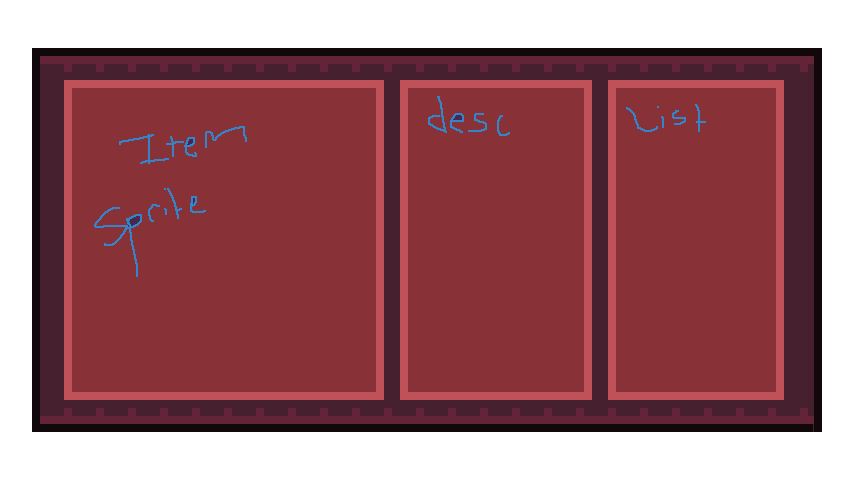 Item
Sprite
desc
List